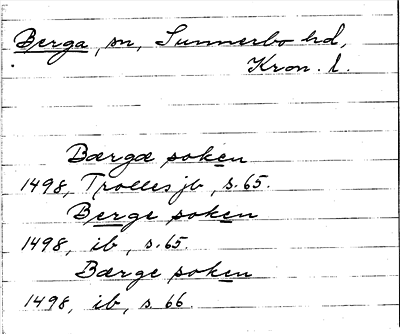 Berga, sn, Sunnerbo hd,
Kron. l.
Bærgæ soken
1498, Trolles jb, s. 65.
Berge soken
1498, ib, s. 65.
Bærge soken
1498, ib, s. 66.